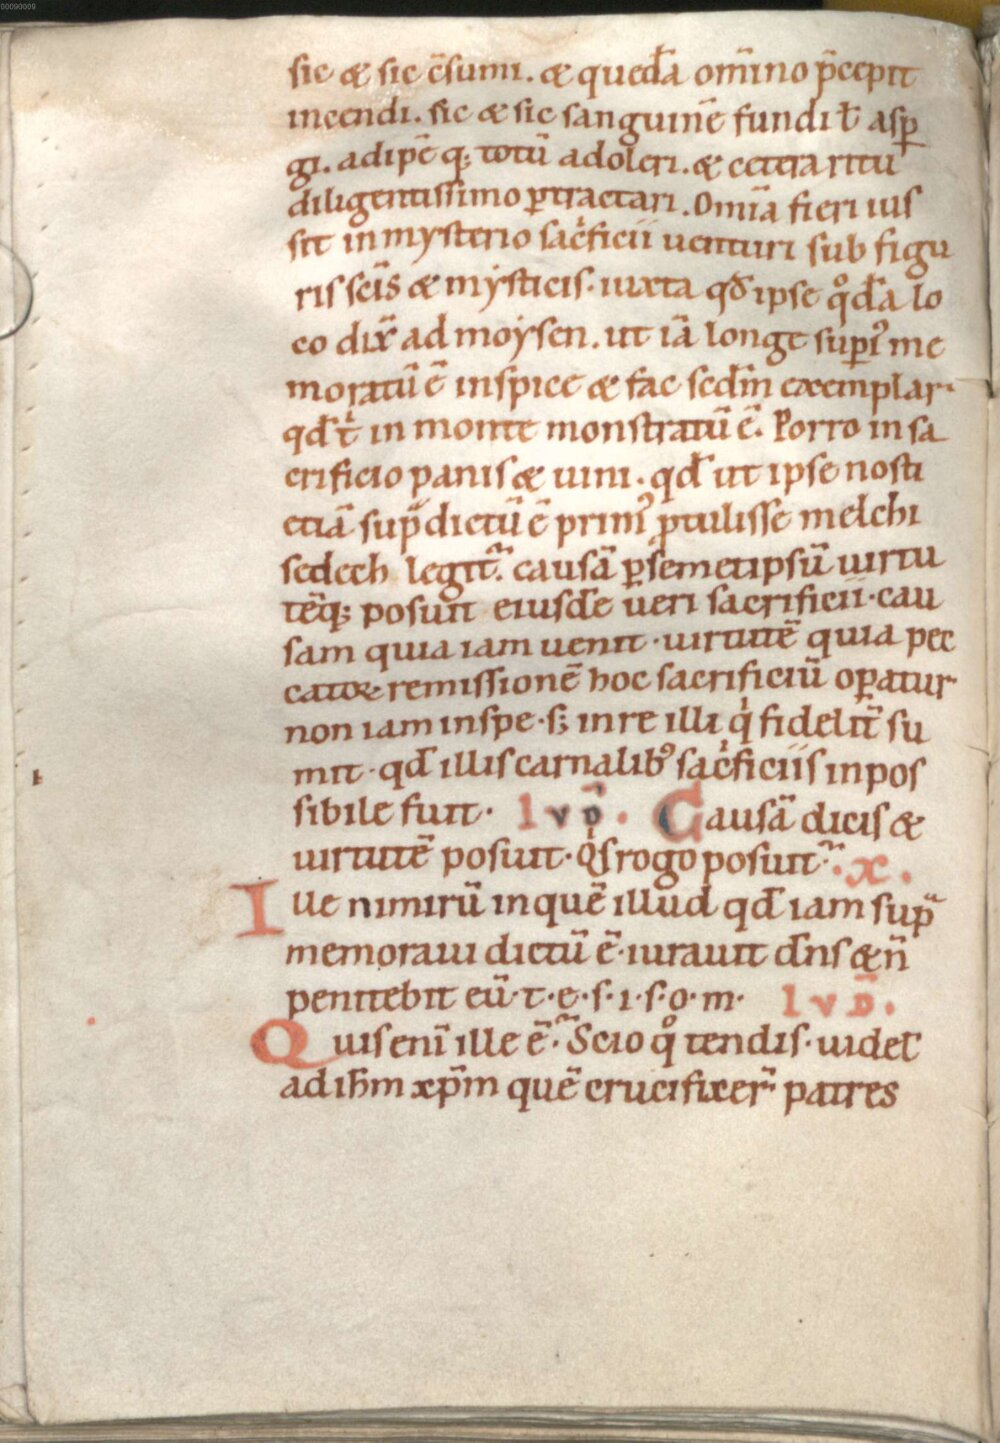 00090009
sic & sic c̄sumi. & quedā om̄ino p̄cepit
incendi. sic & sic sanguinē fundi ł asꝑ
gi. adipē q; totū adoleri. & cetera ritu
diligentissimo ꝑtractari. Om̄ia fieri ius
sit in mysterio sac̍ficii uenturi sub figu
ris sc̄is & mẏsticis. iuxta qđ ipse qͦdā lo
co dix̄ ad moẏsen. ut iā longe suꝑi᾽ me
moratū ē inspice & fac scd̄m exemplar.
qđ t̍ in monte monstratū ē. Porro in sa
crificio panis & uini. qđ ut ipse nosti
etiā sup̄dictū ē primi᾽ ꝓtulisse melchi
sedech legit̄. causā ꝑ semetipsū uirtu
tēq; posuit eiusdē ueri sacrificii. cau
sam quia iam uenit. uirtutē quia pec
catoꝝ remissionē hoc sacrificiū oꝑatur
non iam in spe. s; in re illi q̍ fidelit̄ su
mit. qđ illis carnalib᾽ sac̍ficiis inpos
sibile fuit. lvp̄. Causā dicis &
uirtutē posuit. Q̍s rogo posuit. .x.
Ille nimirū in quē illud qđ iam sup̄
memoraui dictū ē. iurauit dn̄s & n̄
penitebit eū. t. e. s. i. s. o. m. lvp̄.
Quis eni ille ē. Scio qͦ tendis. uidel̄
ad ih̄m xp̄m quē crucifixer̄ patres